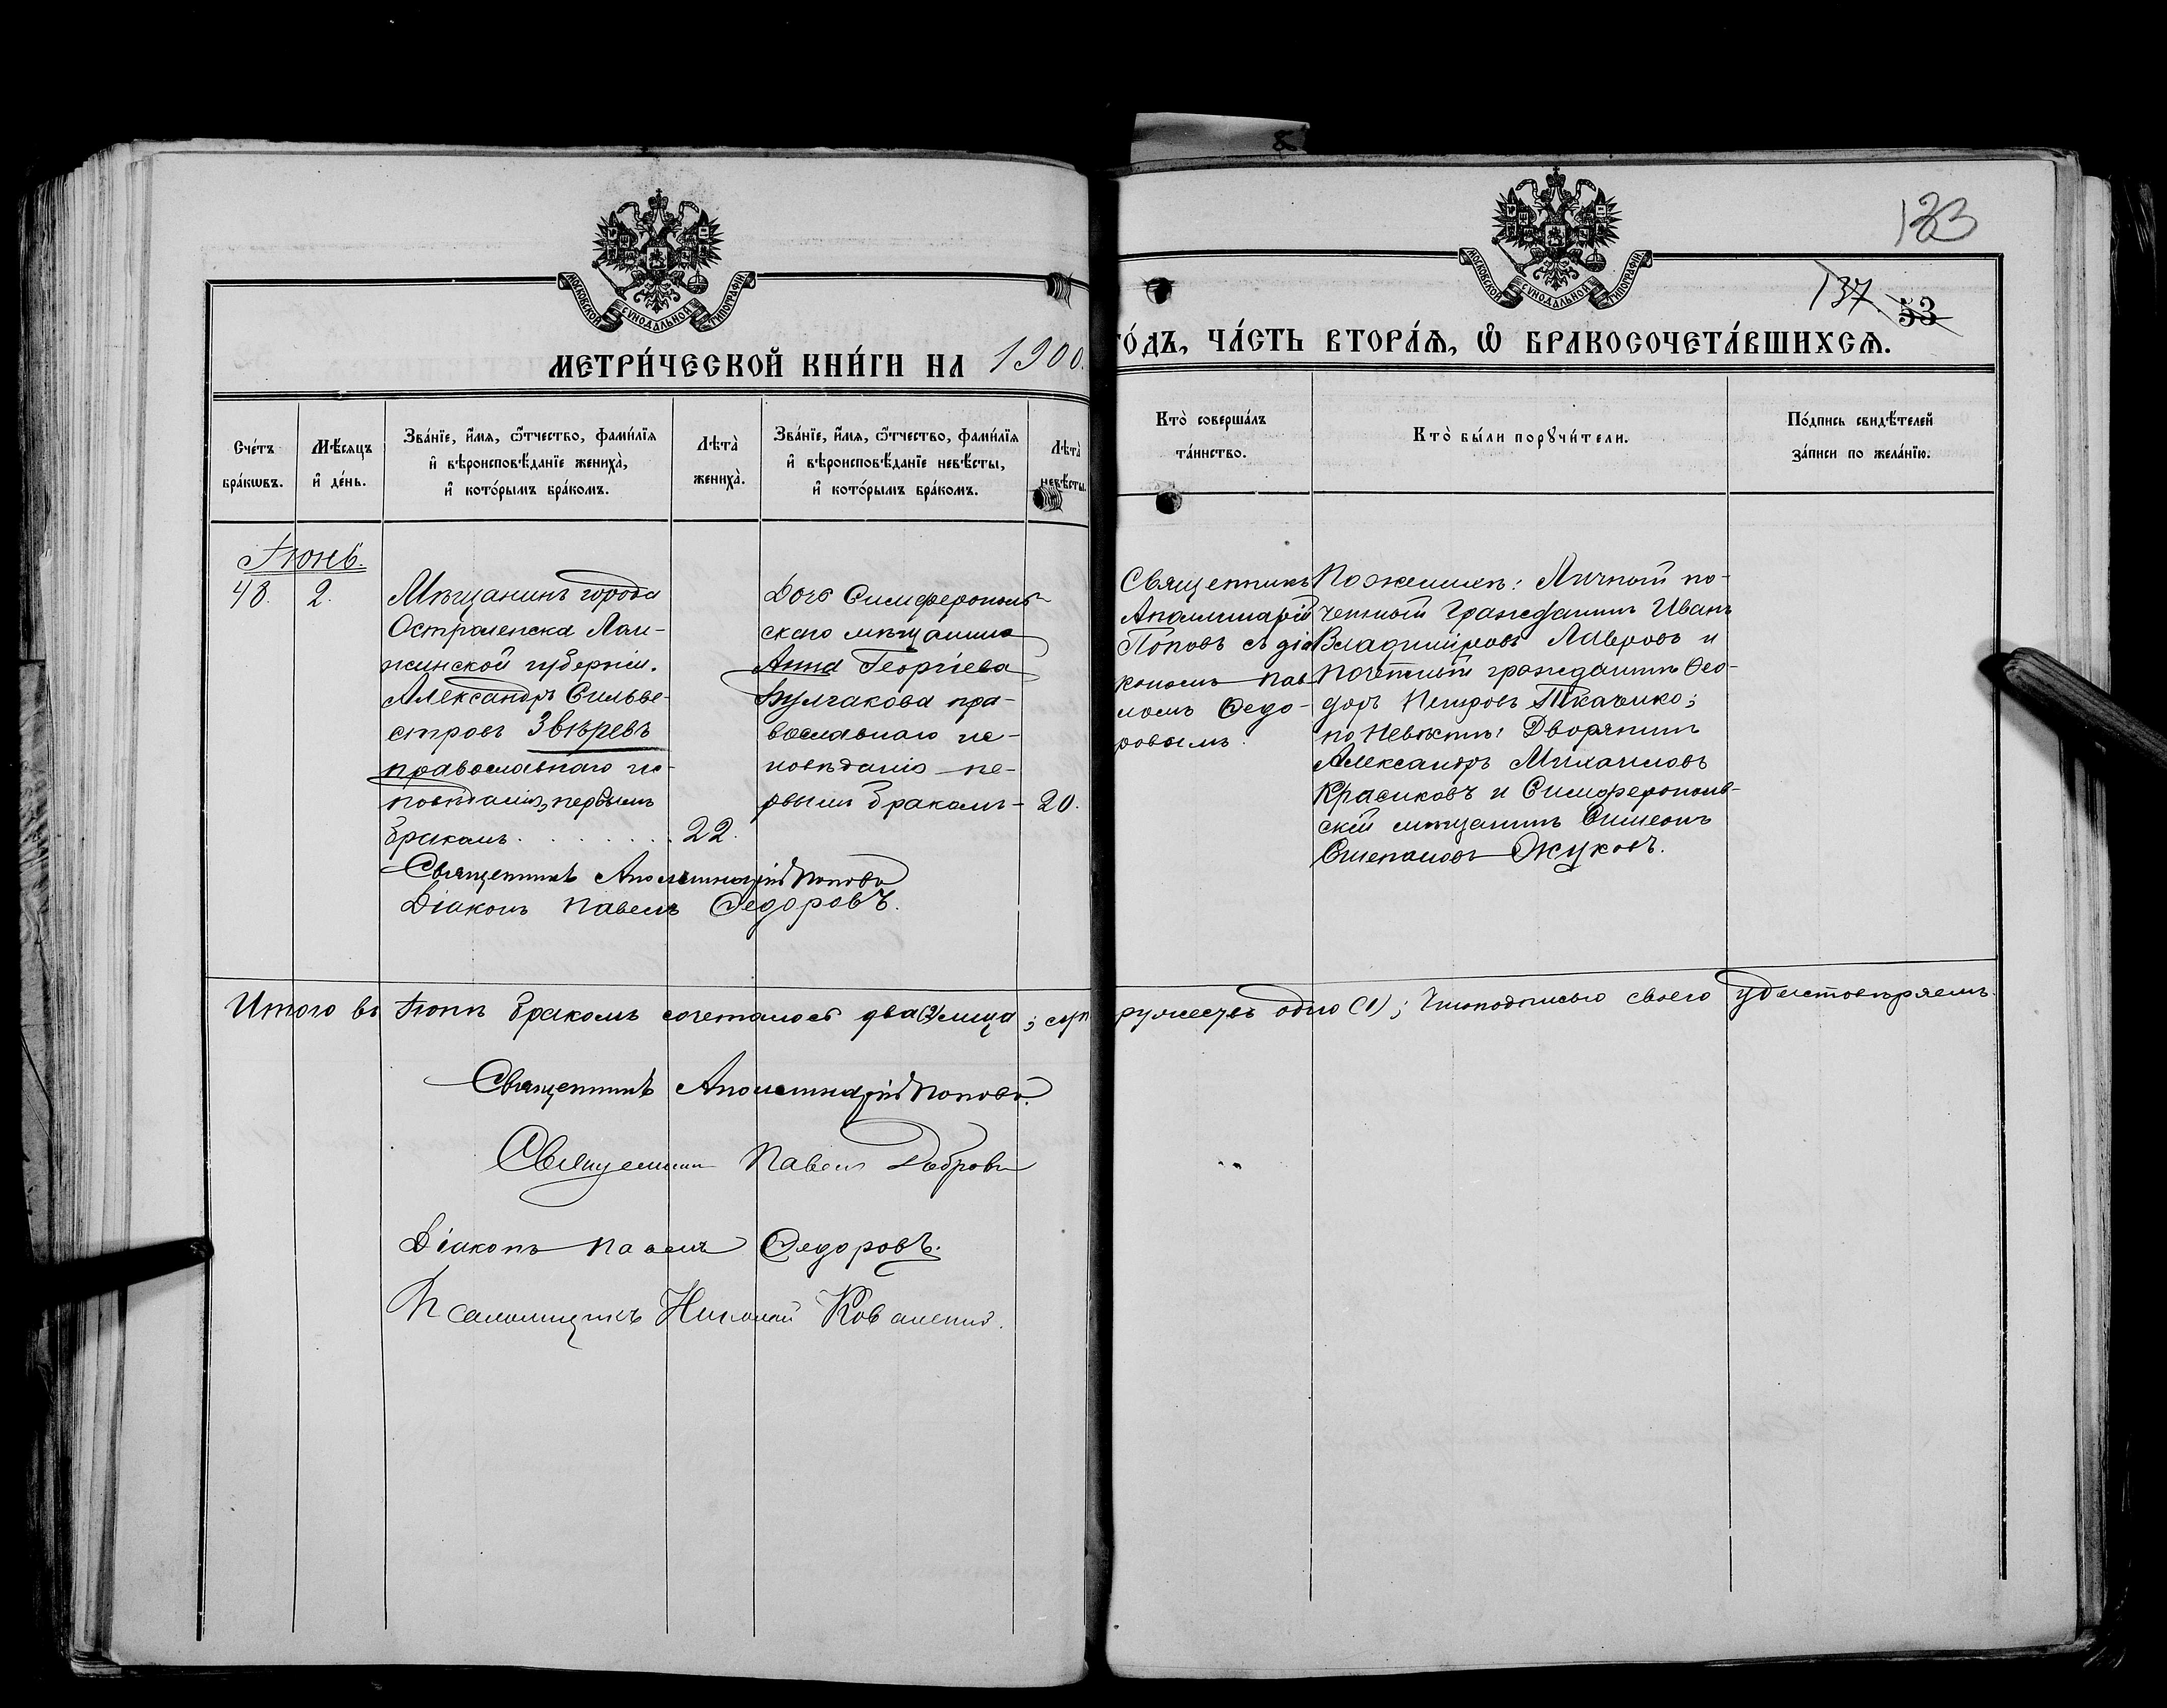 133
137
53
МОСКОВСКОЙ СѴНОДАЛЬНОЙ ТИПОГРАФІИ
МОСКОВСКОЙ СѴНОДАЛЬНОЙ ТИПОГРАФІИ
МЕТРИ́ЧЕСКОЙ КНИ́ГИ НА 1900.
ГО́ДЪ, ЧА́СТЬ ВТОРА́Ѧ, Ѽ БРАКОСОЧЕТА́ВШИХСѦ.
Сче́тъ
бра́кѡвъ.
Мѣ́сяцъ
и҆ де́нь.
Зва́нїе, и҆́мя, ѻ҆́тчество, фами́лїя
и҆ вѣроисповѣ́данїе жениха̀,
и҆ кото́рымъ бра́комъ.
Лѣта̀
жениха̀.
Зва́нїе, и҆́мя, ѻ҆́тчество, фами́лїя
и҆ вѣроисповѣ́данїе невѣ́сты,
и҆ кото́рымъ бра́комъ.
Лѣта̀
невѣ́сты.
Кто̀ соверша́лъ
та́инство.
Кто̀ бы́ли порꙋчи́тели.
По́дпись свидѣ́телей
за́писи по жела́нїю.
Іюнь.
48.
2.
Мѣщанинъ города
Остроленска Лом-
жинской губерніи.
Александръ Сильве-
стровъ Звѣревъ
православнаго ис-
повѣданія, первымъ
бракомъ.
22.
Дочь Симферополь-
скаго мѣщанина
Анна Георгіева
Булгакова пра-
вославнаго ис-
повѣданія пе-
рвымъ бракомъ-
20.
Священникъ
Аполлинарій
Поповъ съ діа
кономъ Пав
ломъ Ѳедо-
ровымъ.
По женихѣ: Личный по-
четный Гражданинъ Иванъ
Владиміровъ Лавровъ и
почетный гражданинъ Ѳео-
доръ Петровъ Ткаченко;
по Невѣстѣ: Дворянинъ
Александръ Михаиловъ
Красиковъ и Симферополь-
скій мѣщанинъ Симеонъ
Степановъ Жуковъ.
Священникъ Аполлинарій Поповъ
Діаконъ Павелъ Ѳедоровъ.
Итого въ Іюнѣ бракомъ сочеталось два (2) лица; суп
ружествъ одно (1); что подписью своею удостовѣряемъ.
Священникъ Аполлинарій Поповъ.
Священникъ Павелъ Добровъ
Діаконъ Павелъ Ѳедоровъ.
Псаломщикъ Николай Коваленко.